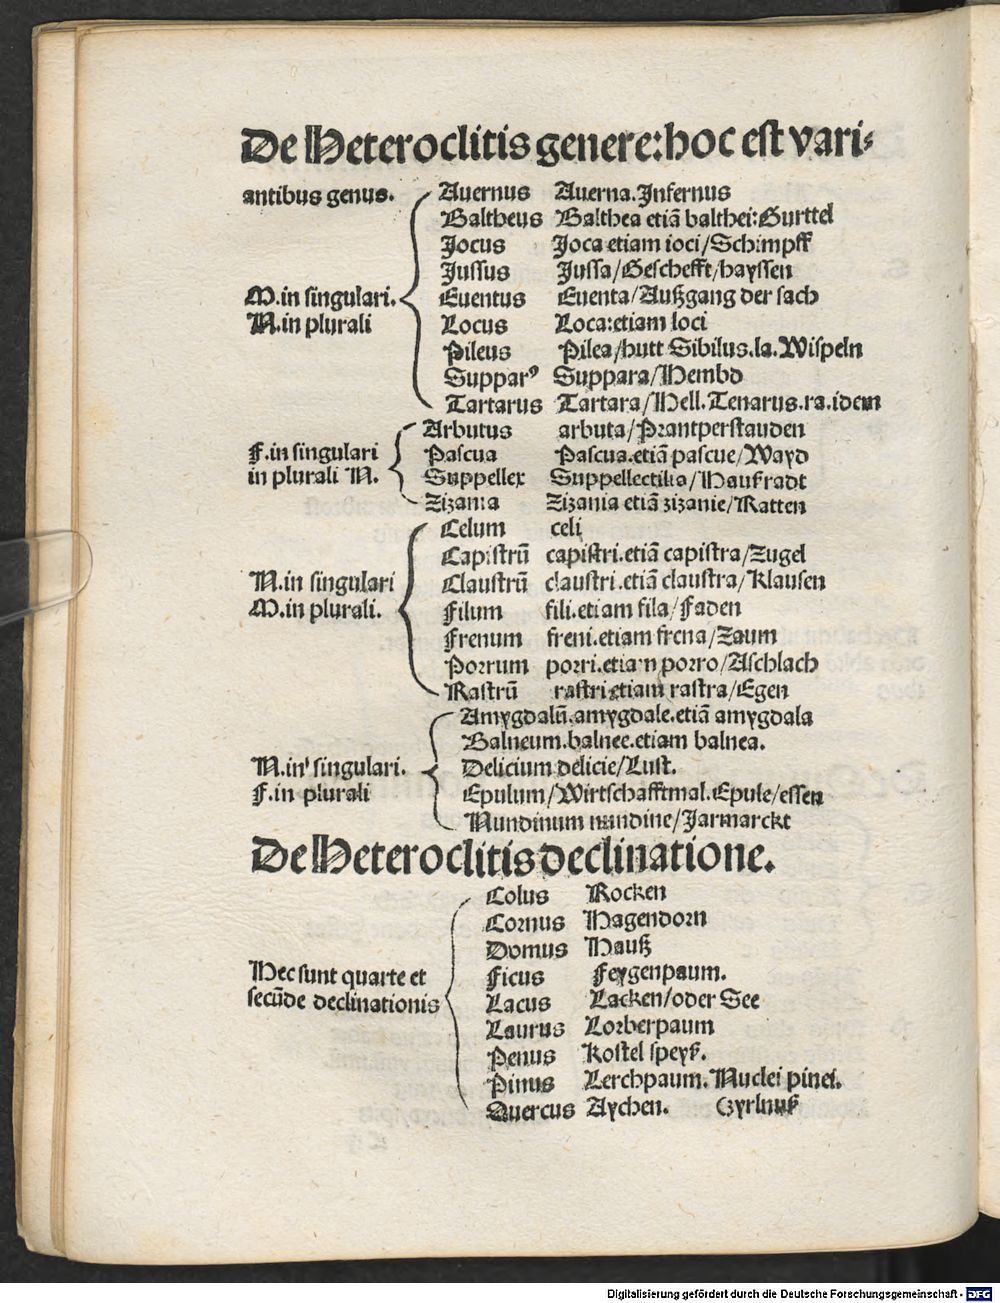 De Heteroclitis genere: hoc est vari⸗
antibus genus.
M. in singulari.
N. in plurali
Auernus Auerna. Infernus
Baltheus Balthea etiā balthei: Gurttel
Jocus Joca etiam ioci/Schimpff
Jussus Jussa/Geschefft/hayssen
Euentus Euenta/Außgang der sach
Locus Loca: etiam loci
Pileus Pilea/hutt Sibilus. la. Wispeln
Supparꝰ Suppara/Hembd
Tartarus Tartara/Hell. Tenarus. ra. idem
F. in singulari
in plurali N.
Arbutus arbuta/Prantperstauden
Pascua Pascua. etiā pascue/Wayd
Suppellex Suppellectilia/Haußradt
Zizania Zizania etiā zizanie/Ratten
N. in singulari
M. in plurali.
Celum celi
Capistrū capistri. etiā capistra/Zugel
Claustrū claustri. etiā claustra/Klausen
Filum fili. etiam fila/Faden
Frenum freni. etiam frena/Zaum
Porrum porri. etiam porro/Aschlach
Rastrū rastri etiam rastra/Egen
N. in singulari.
F. in plurali
Amygdalū. amygdale. etiā amygdala
Balneum. balnee. etiam balnea.
Delicium delicie/Lust.
Epulum/Wirtschafftmal. Epule/essen
Nundinum nundine/Jarmarckt
De Heteroclitis declinatione.
Hec sunt quarte et
secūde declinationis
Colus Rocken
Cornus Hagendorn
Domus Hauß
Ficus Feygenpaum.
Lacus Lacken/oder See
Laurus Lorberpaum
Penus Kostel speyß.
Pinus Lerchpaum. Nuclei pinei.
Quercus Aychen. Gyrlnuß
Digitalisierung gefördert durch die Deutsche Forschungsgemeinschaft - DFG